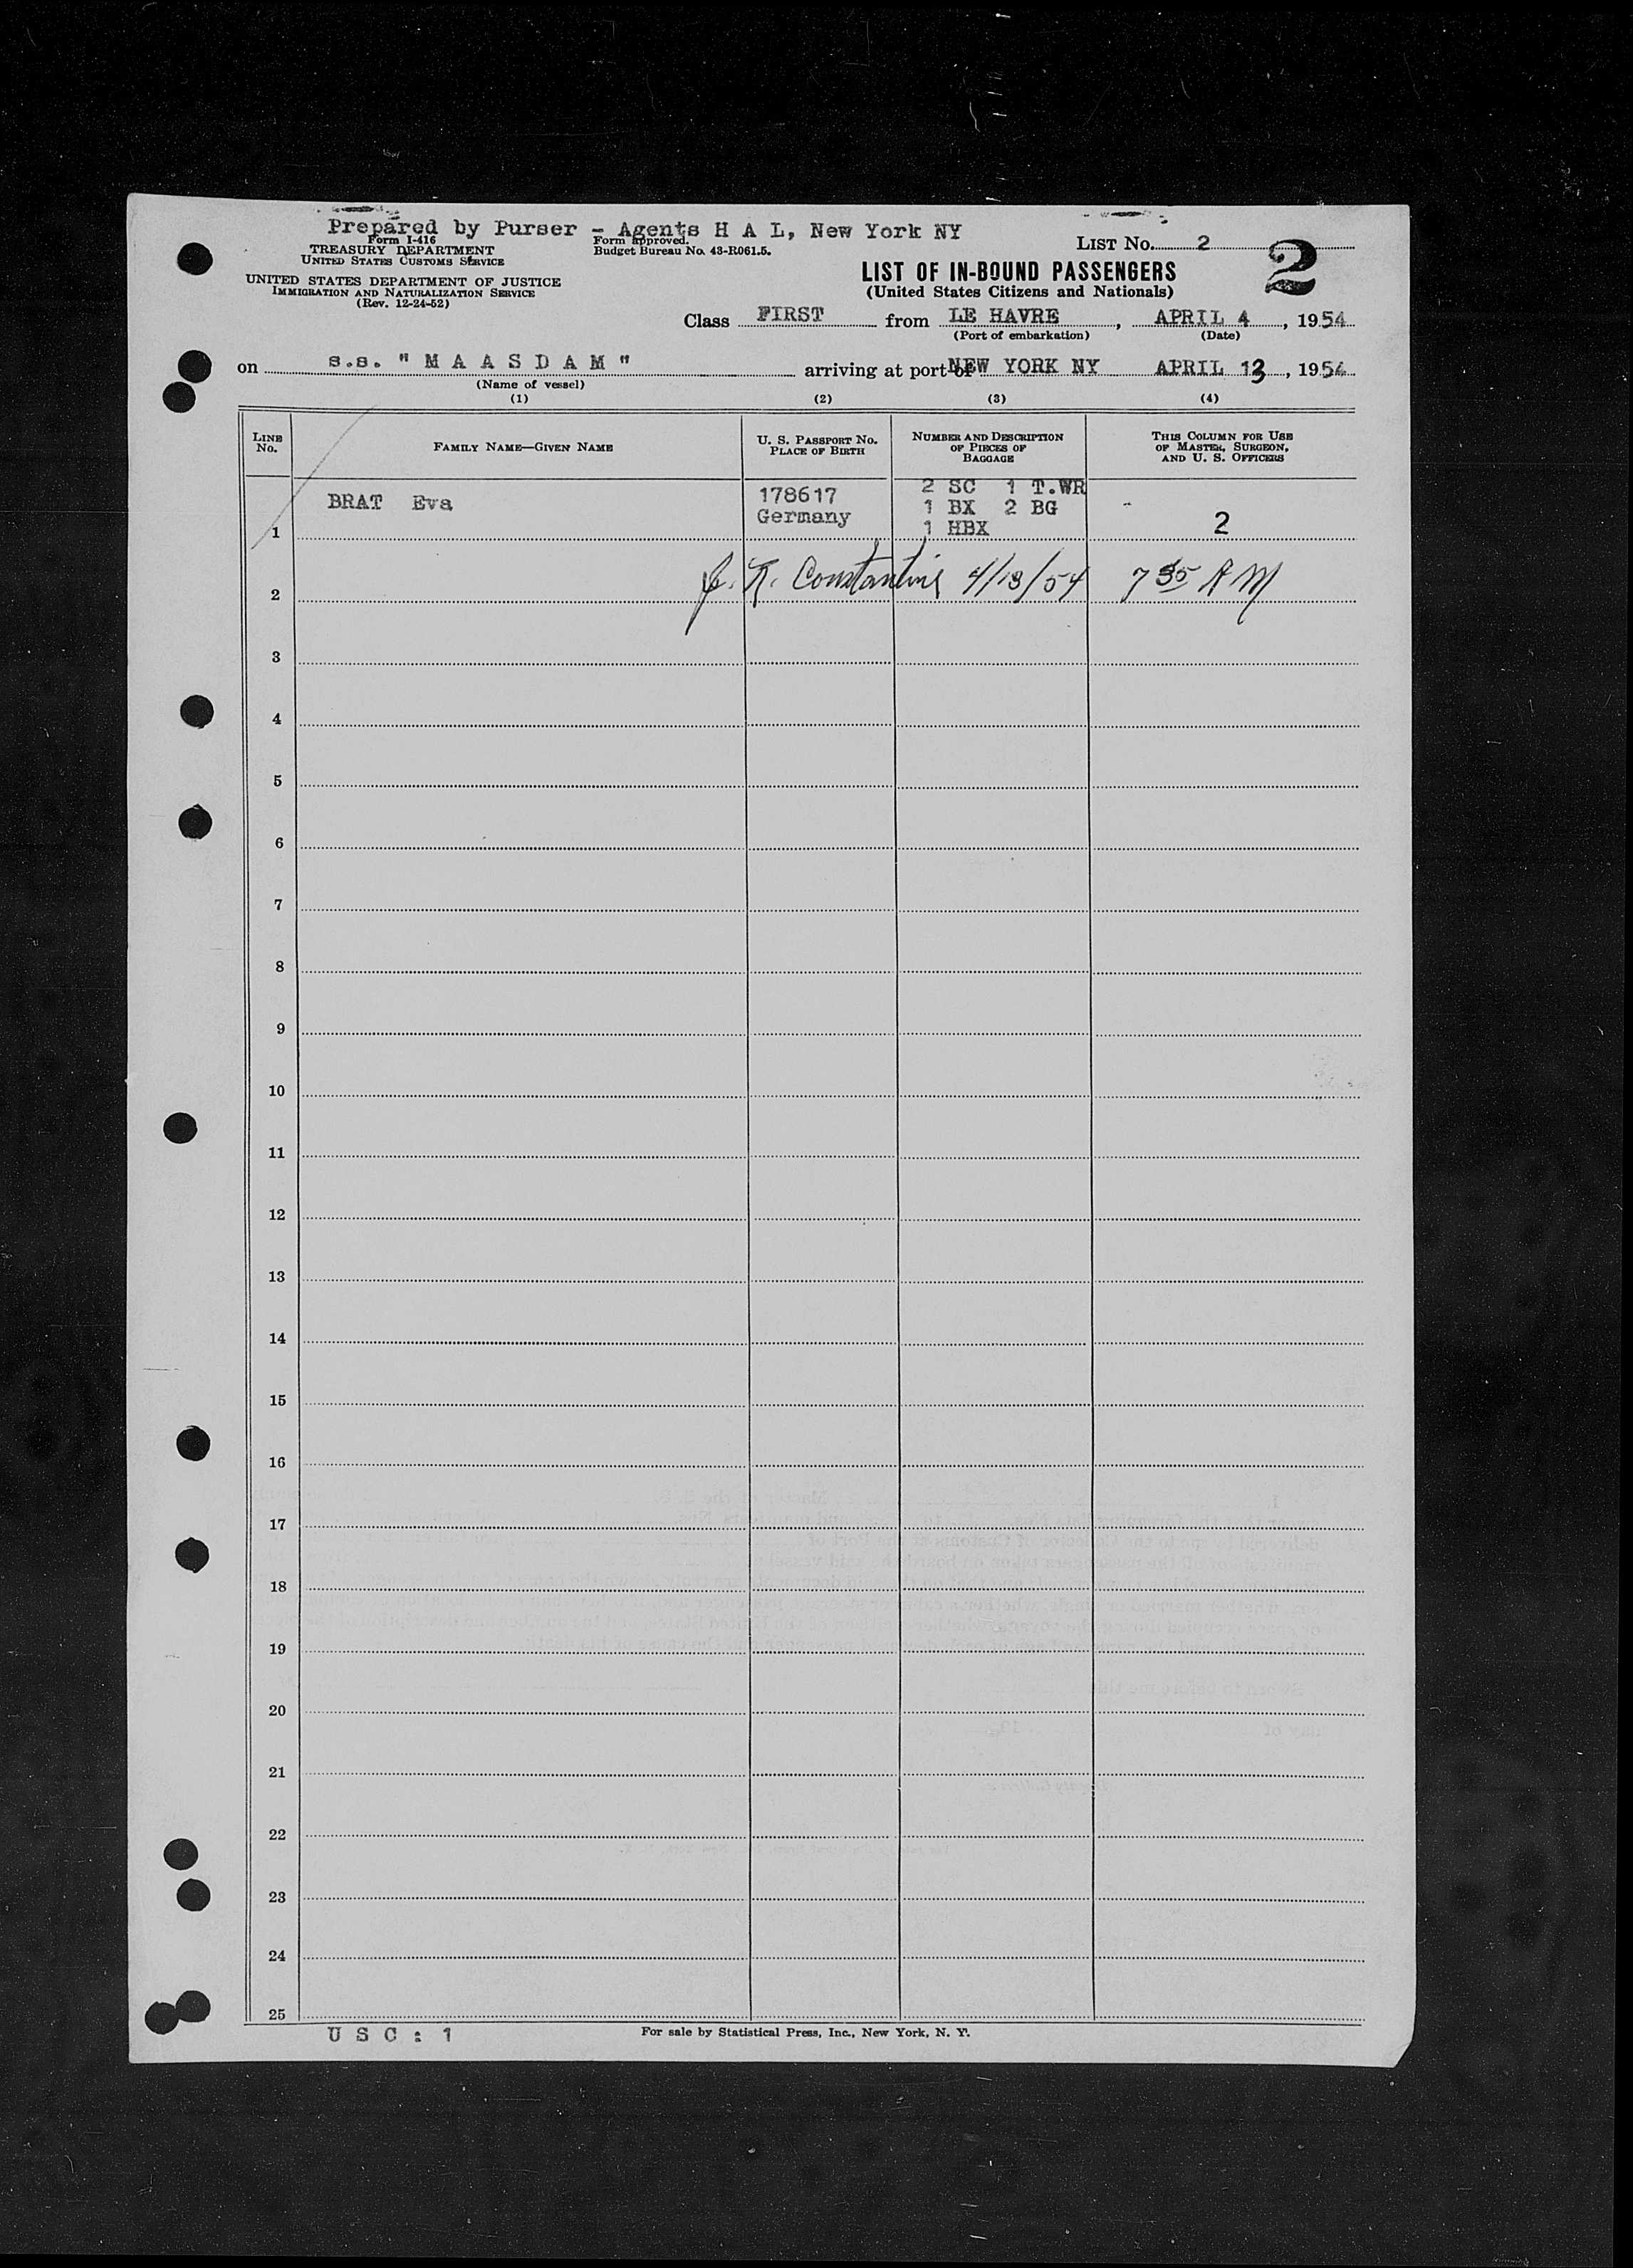 Prepared by Purser - Agents H A L, New York NY
Form I-416
TREASURY DEPARTMENT
UNITED STATES CUSTOMS SERVICE
Form approved.
Budget Bureau No. 43-R061.5.
LIST No. 2
2
UNITED STATES DEPARTMENT OF JUSTICE
IMMIGRATION AND NATURALIZATION SERVICE
(Rev. 12-24-52)
LIST OF IN-BOUND PASSENGERS
(United States Citizens and Nationals)
Class FIRST from LE HAVRE, APRIL 4, 1954
(Port of embarkation) (Date)
on s.s. "MAASDAM" arriving at port of NEW YORK NY APRIL 13, 1954
(Name of vessel)
(1) (2) (3) (4)
LINE No.
FAMILY NAME—GIVEN NAME
U. S. PASSPORT No.
PLACE OF BIRTH
NUMBER AND DESCRIPTION
OF PIECES OF
BAGGAGE
THIS COLUMN FOR USE
OF MASTER, SURGEON,
AND U. S. OFFICERS
1 BRAT Eva
178617
Germany
2 SC 1 T.WR
1 BX 2 BG
1 HBX
2
2 Constantine 4/13/54 7 35 AM
3
4
5
6
7
8
9
10
11
12
13
14
15
16
17
18
19
20
21
22
23
24
25
U S C : 1
For sale by Statistical Press, Inc., New York, N. Y.